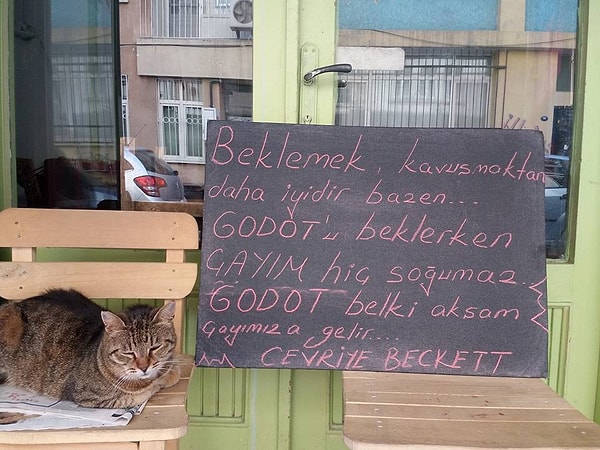 Beklemek, kavuşmaktan
daha iyidir bazen...
GODOT'u beklerken
ÇAYIM hiç soğumaz..
GODOT belki akşam
çayımıza gelir....
CEVRİYE BECKETT